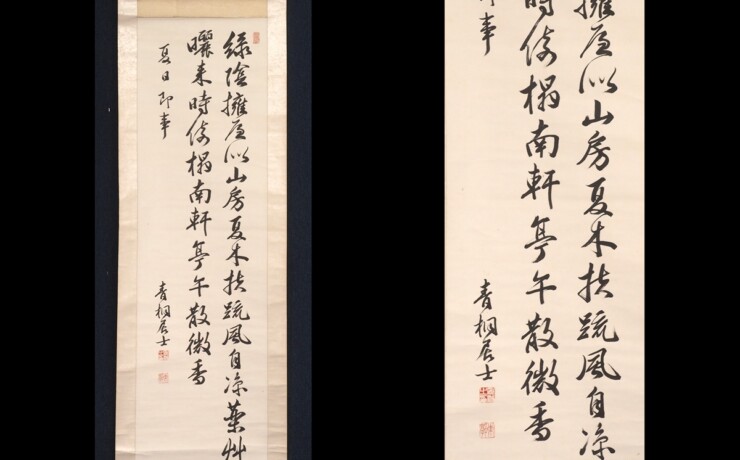 緑陰擁屋似山房夏木扶疏風自涼薬艸
曬来時倚榻南軒亭午散微香
夏日即事
青桐居士
擁屋似山房夏木扶疏風自涼
時倚榻南軒亭午散微香
即事
青桐居士